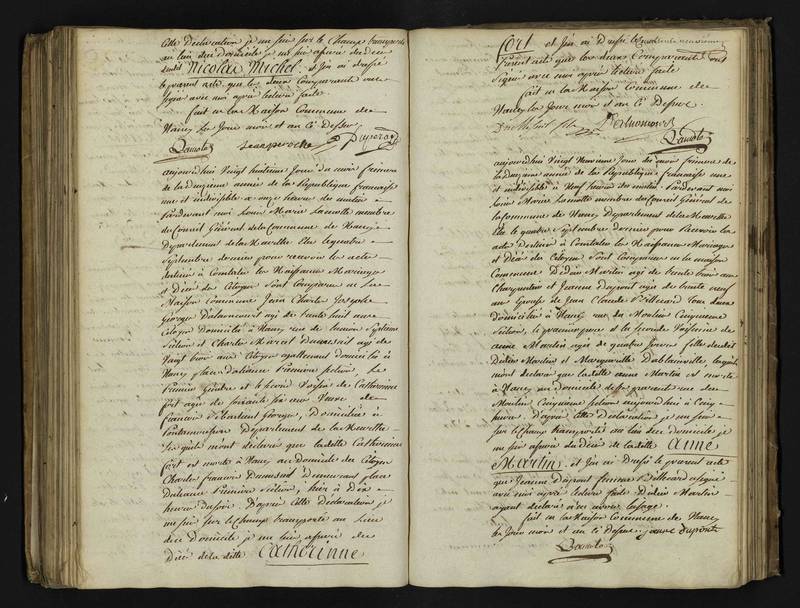 Cette Déclaration je me suis sur le Champ transporté
au lieu du domicile je me suis assuré du deces
dudit Nicolas Michel et j'en ai dressé
le présent acte que les deux Comparants ont
Signé avec moi après lecture faite
fait en la Maison Commune de
Nancy les Jour mois et an Ci Dessus
Lamotte
aujourdhui Vingt huitieme Jour du mois frimaire
de la Douzieme année de la République francaise
une et indivisible a onze heures du matin
Pardevant moi Louis Marie Lamotte membre
du Conseil Général de la Commune de Nancy
Département de la Meurthe Elu le quatre
Septembre dernier pour recevoir les actes
destinés à Constater les Naissances Mariages
et Décès des Citoyens Sont Comparus en la
Maison Commune Jean Charles Joseph
agé de trente huit ans
Citoyen Domicilié à Nancy rue
Section et Charles agé de
Vingt trois ans Citoyen egallement domicilié à
Nancy place d'alliance Premiere Section, Le
Premier Gendre et le Second Voisin de Catherinne
Fort agée de soixante six ans Veuve de
francois Domiciliée à
Département de la Meurthe
Lesquels m'ont déclaré que la ditte Catherinne
fort est morte à Nancy au Domicile du Citoyen
Charles francois Demeurant place
D'alliance Premiere Section, hier à Dix
heures du soir. D'après Cette Déclaration je
me suis sur le champ transporté au lieu
du Domicile je me suis assuré du
Décès de la ditte Catherinne
Fort et j'en ai Dressé le
Présent acte que les deux Comparants ont
Signé avec moi après lecture faite
fait en la Maison Commune de
Nancy les Jour mois et an Ci Dessus.
Lamotte
aujourdhui Vingt Neuvieme Jour du mois frimaire de
la Douzieme année de la République francaise une
et indivisible à Neuf heures du matin Pardevant moi
Louis Marie Lamotte membre du Conseil Général de
la Commune de Nancy Département de la Meurthe
Elu le quatre Septembre dernier pour Recevoir les
actes Destinés à Constater les Naissances Mariages
et Décès des Citoyens Sont Comparus en la maison
Commune Didier Martin agé de trente trois ans
Charpentier et Jeanne Dupont agée de trente neuf
ans Epouse de Jean Claude Tous deux
domiciliés à Nancy rue du Moulin Cinquieme
Section, le premier pere et la Seconde Voisine de
anne Martin agée de quatre Jours fille dudit
Didier Martin et Margueritte lesquels
m'ont déclaré que la ditte anne Martin est morte
à Nancy au Domicile de ses parents rue du
Moulin Cinquieme Section aujourdhui à Cinq
heures. D'après Cette Déclaration je me suis
sur le champ transporté au lieu du Domicile je
me suis assuré du Décès de la ditte Anne
Martin et j'en ai Dressé le présent acte
que Jeanne Dupont femme a signé
avec moi après lecture faite Didier Martin
ayant déclaré n'en avoir l'usage.
fait en la Maison Commune de Nancy
les Jour mois et an Ci Dessus jeanne dupont
Lamotte